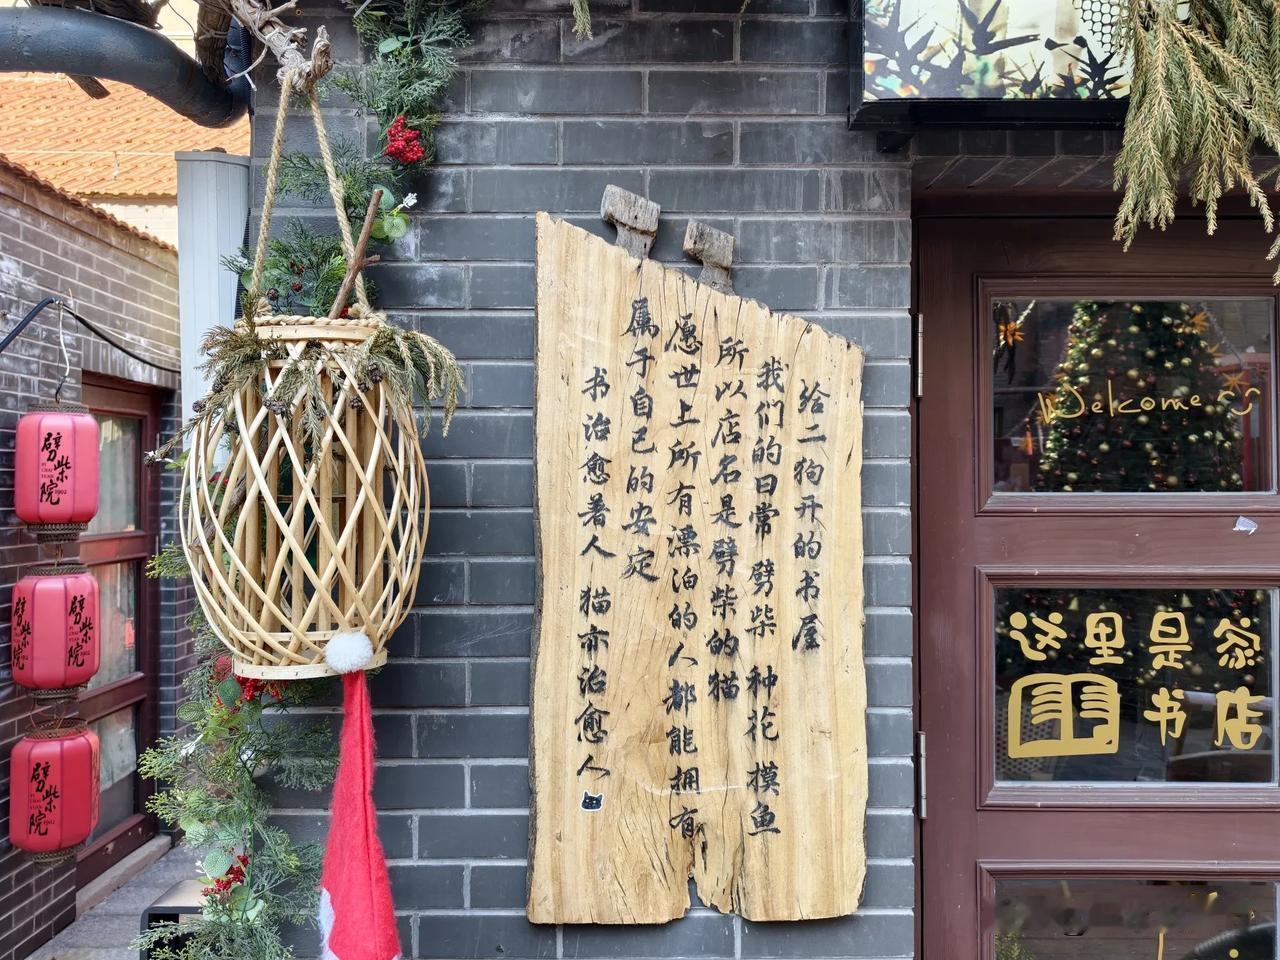 给二狗开的书屋
我们的日常劈柴 种花 摸鱼
所以店名是劈柴的猫
愿世上所有漂泊的人都能拥有
属于自己的安定
书治愈着人 猫亦治愈人
Welcome
这里是茶
书店
劈柴院
PI
CHAI
YUAN
1902
劈柴院
劈柴院
劈柴院